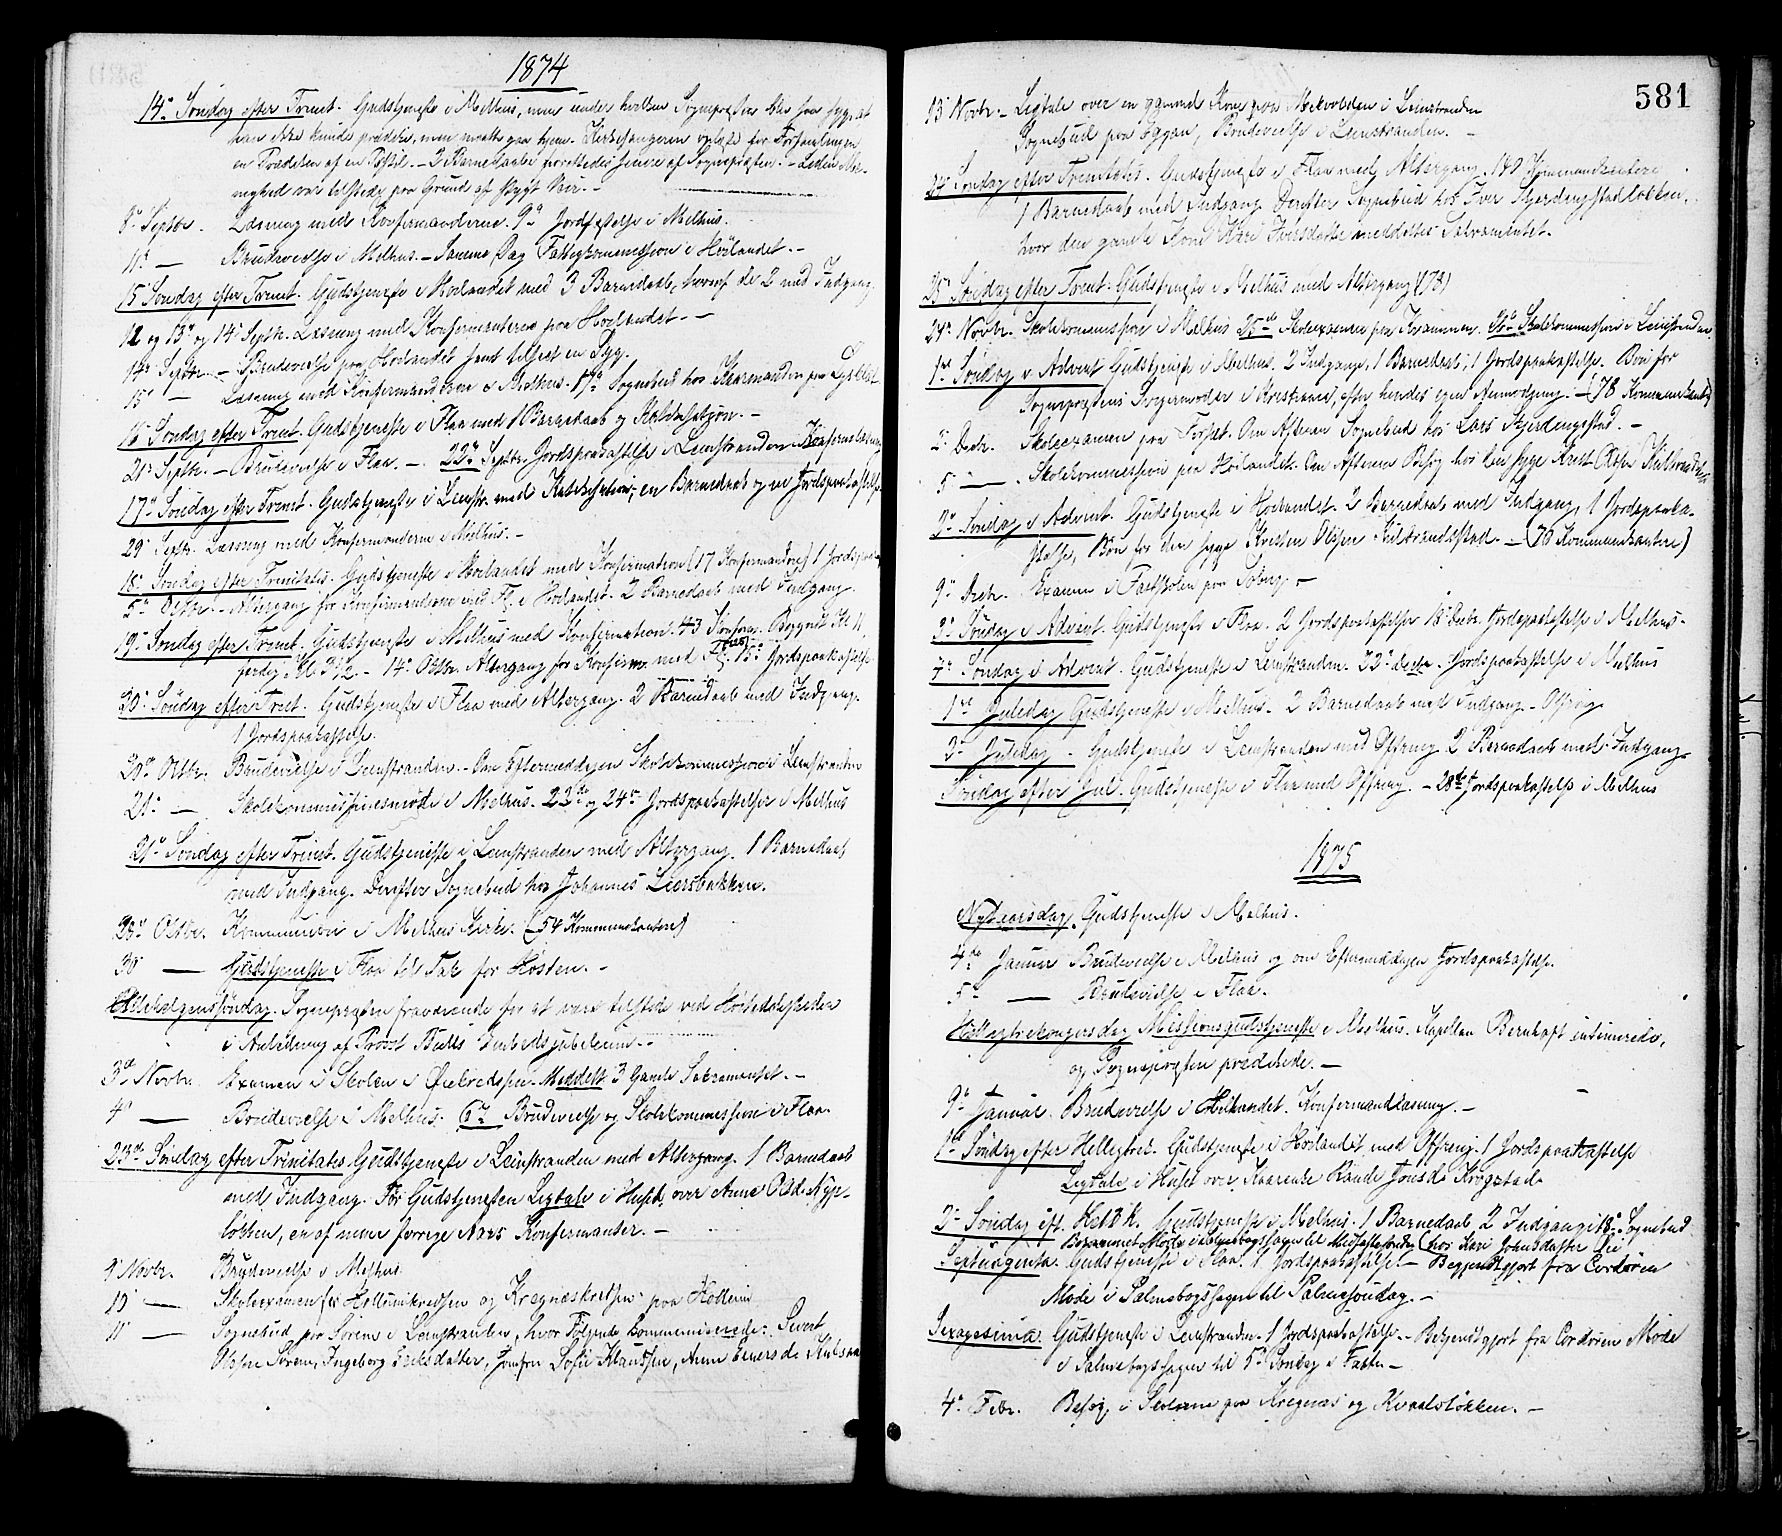 1874
14de Søndag efter Trinit. Gudstjeneste i Melhus, men under hvilken Sognepræsten blev saa syg, at
han ikke kunde prædike, men maatte gaa hjem. Kirkesangeren oplæste for Forsamlingen
en Prædiken af en Postil. – 2 Barnedaabe forrettedes senere af Sognepræsten. – Liden Me-
nighed var tilstede paa Grund af stygt Veir. –
8de Septbr. Læsning med Konfirmanderne. 9de Jordfæstelse i Melhus.
11te — Brudevielse i Melhus. – Samme Dag Fattigkommission i Høilandet. –
15 Søndag efter Trinit. Gudstjeneste i Høilandet med 3 Barnedaab, hvoraf de 2 med Indgang.
12 og 13de og 14de Septbr. Læsning med Konfirmanterne paa Høilandet. –
14de Septbr. – Brudevielse paa Høilandet samt tilseet en Syg.
15de — Læsning med Konfirmanderne i Melhus. 17de Sognebud hos
16de Søndag efter Trinit. Gudstjeneste i Flaa med 1 Barnedaab og Katekisation. –
21de Septbr. – Brudevielse i Flaa. – 22de Septbr. Jordspaakastelse i Leinstranden
17de Søndag efter Trinit. Gudstjeneste i Leinstr. med Katekisation, en Barnedaab og en Jordspaakastelse
29de Septbr. Læsning med Konfirmanderne i Melhus. –
18de Søndag efter Trinitatis. Gudstjeneste i Høilandet med Konfirmation (17 Konfirmandere) 1 Jordspaak.
5te Oktbr. – Altergang for Konfirmanderne med Fl. i Høilandet. 2 Barnedaab med Indgang.
19de Søndag efter Trinit. Gudstjeneste i Melhus med Konfirmation. 43 Konfirm. Begyndt Kl 11
færdig Kl. 3 1/2. – 14de Oktbr. Altergang for Konfirm. med Fl. 15de Jordspaakastelse.
20de Søndag efter Trinit. Gudstjeneste i Flaa med Altergang. 2 Barnedaab med Indgang.
1 Jordspaakastelse.
20de Oktbr. Brudevielse i Leinstranden. – Om Eftermiddagen Skolekommission i Leinstranden
21de — Skolekommissionsmøde i Melhus. 23de og 24de Jordspaakastelser i Melhus
21de Søndag efter Trinit. Gudstjeneste i Leinstranden med Altergang. 1 Barnedaab
med Indgang. Derefter Sognebud hos Johannes Leersbakken.
29de Oktbr. Kommunion i Melhus Kirke. (54 Kommunikantere)
30 — Gudstjeneste i Flaa til Tak for Høsten. –
Allehelgenssøndag. Sognepræsten fraværende for at være tilstede ved Høitideligheden
i Anledning af Provst Bulls Embedsjubileum. –
3de Novbr. Examen i Skolen i Meddelt 3 Gamle Sakramentet. –
4de — Brudevielse i Melhus. 6te Brudevielse og Skolekommission i Flaa.
23de Søndag efter Trinitatis. Gudstjeneste i Leinstranden med Altergang. 1 Barnedaab
med Indgang. Før Gudstjenesten Ligtale i Huset over Anne Olsd.
en af mine forrige Aars Konfirmanter. –
9 Novbr. Brudevielse i Melhus
10 — Skoleexamen for og Krægnæskredsen paa
11 — Sognebud paa Søren i Leinstranden, hvor Følgende kommunicerede: Sivert
Olsen Søren, Ingeborg Eriksdatter, Jomfru Sofie Klaussen, Anne
581
13 Novbr. – Ligtale over en gammel Kone paa i Leinstranden
Sognebud paa Brudevielse i Leinstranden. –
24 Søndag efter Trinitatis. Gudstjeneste i Flaa med Altergang. Kommunikantere
1 Barnedaab med Indgang. Derefter Sognebud hos Iver Skjerdingstadløkken,
hvor den gamle Kone Kari Iversdatter meddeltes Sakramentet.
25de Søndag efter Trinit. Gudstjeneste i Melhus med Altergang (78)
24de Novbr. Skolekommission i Melhus 25de Skoleexamen paa 26de Skolekommission i Leinstranden
1ste Søndag i Advent Gudstjeneste i Melhus. 2 Indgange, 1 Barnedaab, 1 Jordspaakastelse. Bøn for
Sognepræstens Svigermoder i efter hendes egen Anmodning. – (78 Kommunikanter)
2. Decbr. Skoleexamen paa Om Aftenen Sognebud hos Lars Skjerdingstad. –
5 — Skolekommission paa Høilandet. Om Aftenen Besøg hos den syge Krest. Olsen
2den Søndag i Advent. Gudstjeneste i Høilandet. 2 Barnedaab med Indgang, 1 Jordspaaka-
stelse, Bøn for den syge Kresten Olsen Hilbrandsstad. – (76 Kommunikantere)
9de Decbr. Examen i Fastskolen paa Søberg. –
3de Søndag i Advent. Gudstjeneste i Flaa. 2 Jordspaakastelser 18de Decbr. Jordspaakastelse i Melhus. –
4de Søndag i Advent. Gudstjeneste i Leinstranden. 22de Decbr. Jordspaakastelse i Melhus
1ste Juledag Gudstjeneste i Melhus. 2 Barnedaab med Indgang – Offring
2den Juledag – Gudstjeneste i Leinstranden med Offring 2 Barnedaab med Indgang.
Søndag efter Jul. Gudstjeneste i Flaa med Offring. – 28de Jordspaakastelse i Melhus
1875
Nytaarsdag. Gudstjeneste i Melhus.
4de Januar Brudevielse i Melhus og om Eftermiddagen Jordspaakastelse.
5te — Brudevielse i Flaa.
Helligtrekongersdag Missionsgudstjeneste i Melhus. Kapellan Bernhoft intimerede,
og Sognepræsten prædikede. –
9de Januar. Brudevielse i Høilandet. Konfirmandlæsning. –
1ste Søndag efter Helligtrek. Gudstjeneste i Høilandet med Offring. 1 Jordspaakastelse
Ligtale i Huset over Kaarenke Rande Jonsd. Krogstad.
2den Søndag eft. Hel3K. Gudstjeneste i Melhus. 1 Barnedaab 2 Indgange 18de Sognebud
Berammet Møde i Salmebogssagen til Midfastesøndag (hos Kari Johnsdatter
Septuagesima. Gudstjeneste i Flaa. 1 Jordspaakastelse. – Bekjendtgjort fra Cordøren
Møde i Salmebogssagen til Palmesøndag. –
Sexagesima. Gudstjeneste i Leinstranden. 1 Jordspaakastelse. – Bekjendtgjort fra Cordøren Møde
i Salmebogssagen til 5te Søndag i Faste. –
4de Febr. Besøg i Skolerne paa Krægnæs og Kvaalsløkken. –